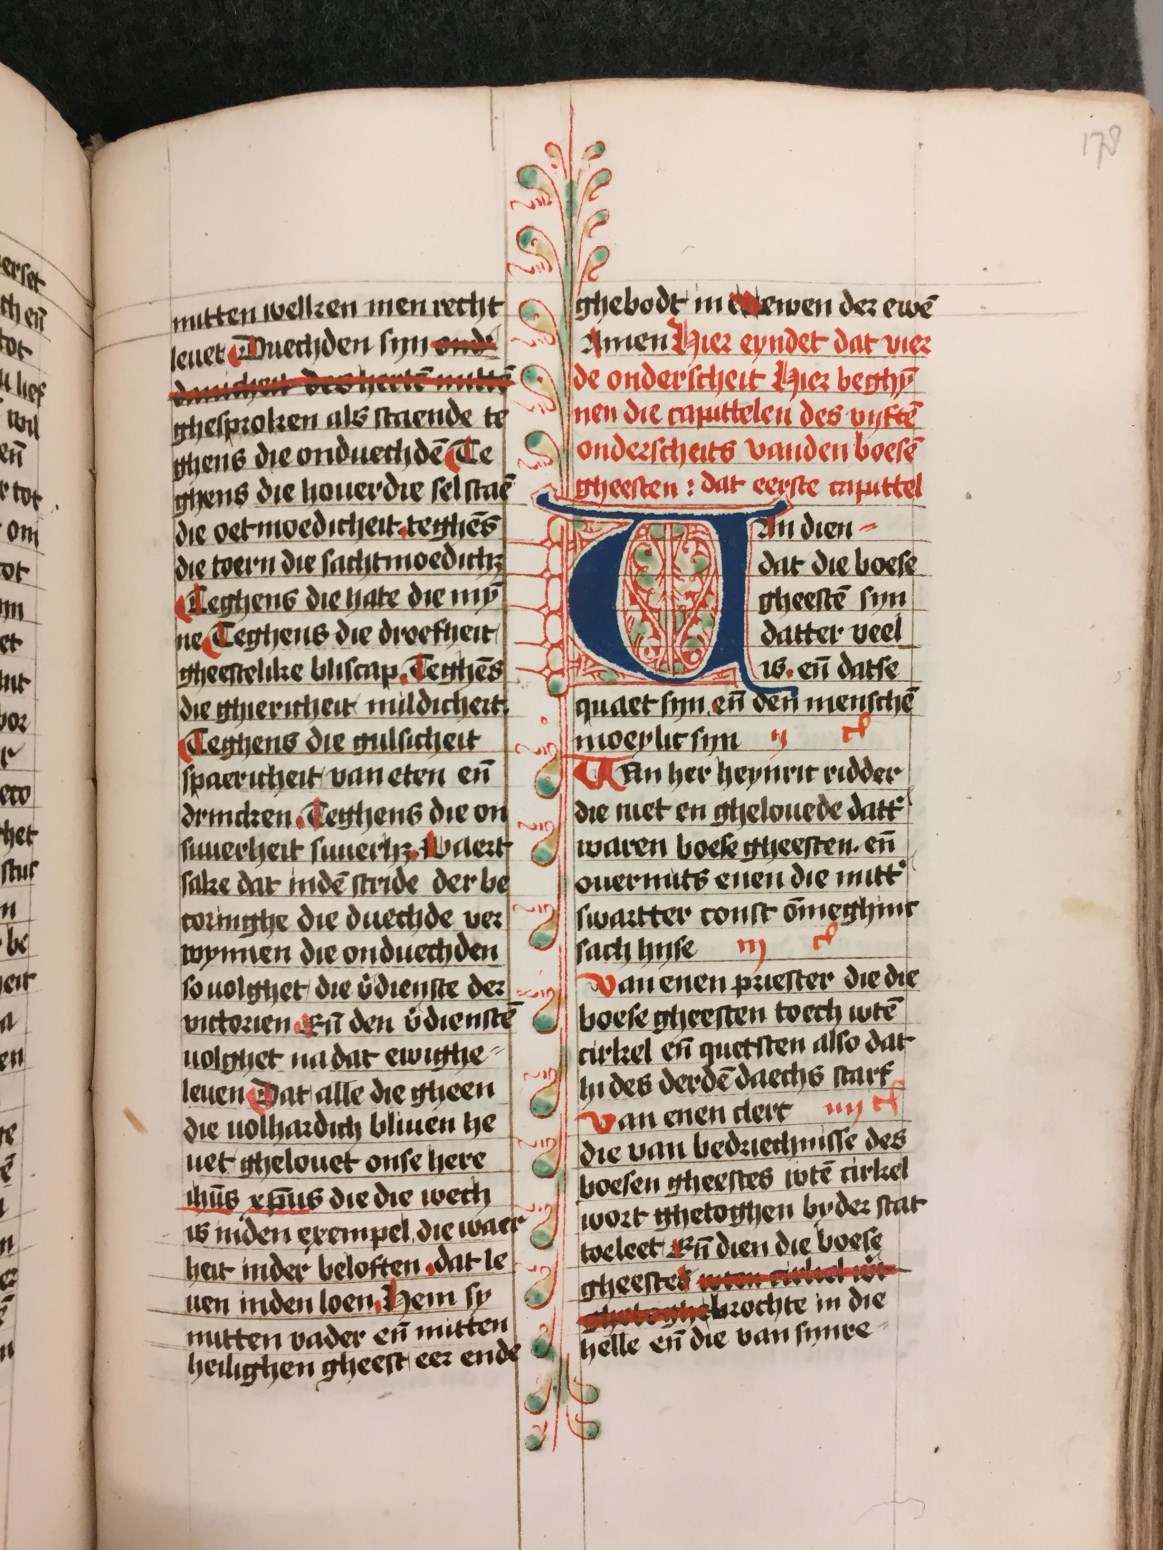 178
mitten welken men recht
leuet Duechden syn ende
duuicheit des herte mitte
ghesproken als staende te
ghens die onduechdē Te
ghens die houerdie sel staē
die oetmoedicheit. teghēs
die toern die sachtmoedichz
Teghens die hate die myn̄
ne Teghens die droefheit
gheestelike bliscap. Teghēs
die ghiericheit mildicheit.
Teghens die gulsicheit
spaericheit van eten en̄
drincken. Teghens die on
suuerheit suuerhz. Waert
sake dat indē stride der be
coringhe die duechde ver
wynnen die onduechden
so uolghet die v̄dienste der
victorien. En̄ den v̄dienstē
uolghet na dat ewighe⸗
leuen Dat alle die gheen
die uolhardich bliuen he
uet ghelouet onse here
ihūs xp̄us die die wech
is inden exempel, die waer
heit inder beloften. dat le
uen inden loen. Hem sy
mitten vader en̄ mitten
heilighen gheest eer ende
ghebodt in ewen der ewē
Amen Hier eyndet dat vier
de onderscheit Hier beghȳ
nen die capittelen des vyftē
onderscheits vanden boesē
gheesten : dat eerste capittel
VAn dien⸗
dat die boese
gheestē syn
datter veel
is. en̄ datse
quaet syn, en̄ den menschē
moeylic syn ij cᵗ
VAn her heynric ridder
die niet en ghelouede datt̄
waren boese gheesten. en̄
ouermits enen die mitt̄
swartter const ōmeghinc
sach hijse iij cᵗ
Van enen priester die die
boese gheesten toech wtē
cirkel en̄ quetsten also dat
hi des derdē daechs starf
Van enen clerc iiij cᵗ
die van bedriechnisse des
boesen gheestes wtē cirkel
wort ghetoghen byder stat
toeleet En̄ dien die boese
gheestes wten cirkel
ghetoghe brochte in die
helle en̄ die van synre⸗